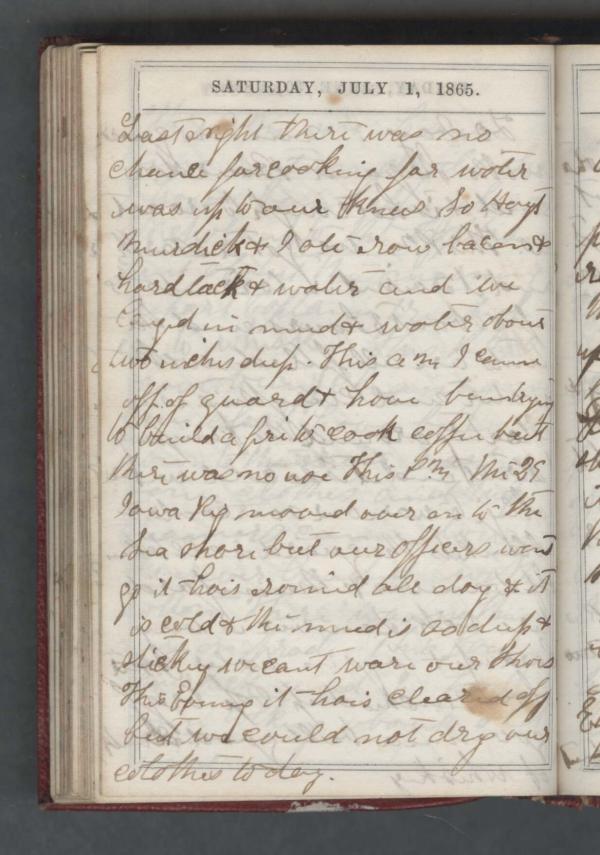 SATURDAY, JULY 1, 1865.
Last night there was no
chance for cooking for water
was up to our knees So Hoyt
Murdick & I ate raw bacon &
hardtack & water and we
layed in mud & water about
two inches deep. This a m I came
off of guard & have been trying
to build a fire to cook coffee but
there was no use This P.M. the 29
Iowa Reg moved over on to the
Sea shore but our officers wont
go it hais rained all day & it
is cold & the mud is so deep &
sticky we cant ware our shoes
This Evning it hais cleared off
but we could not dry our
colothes to day.